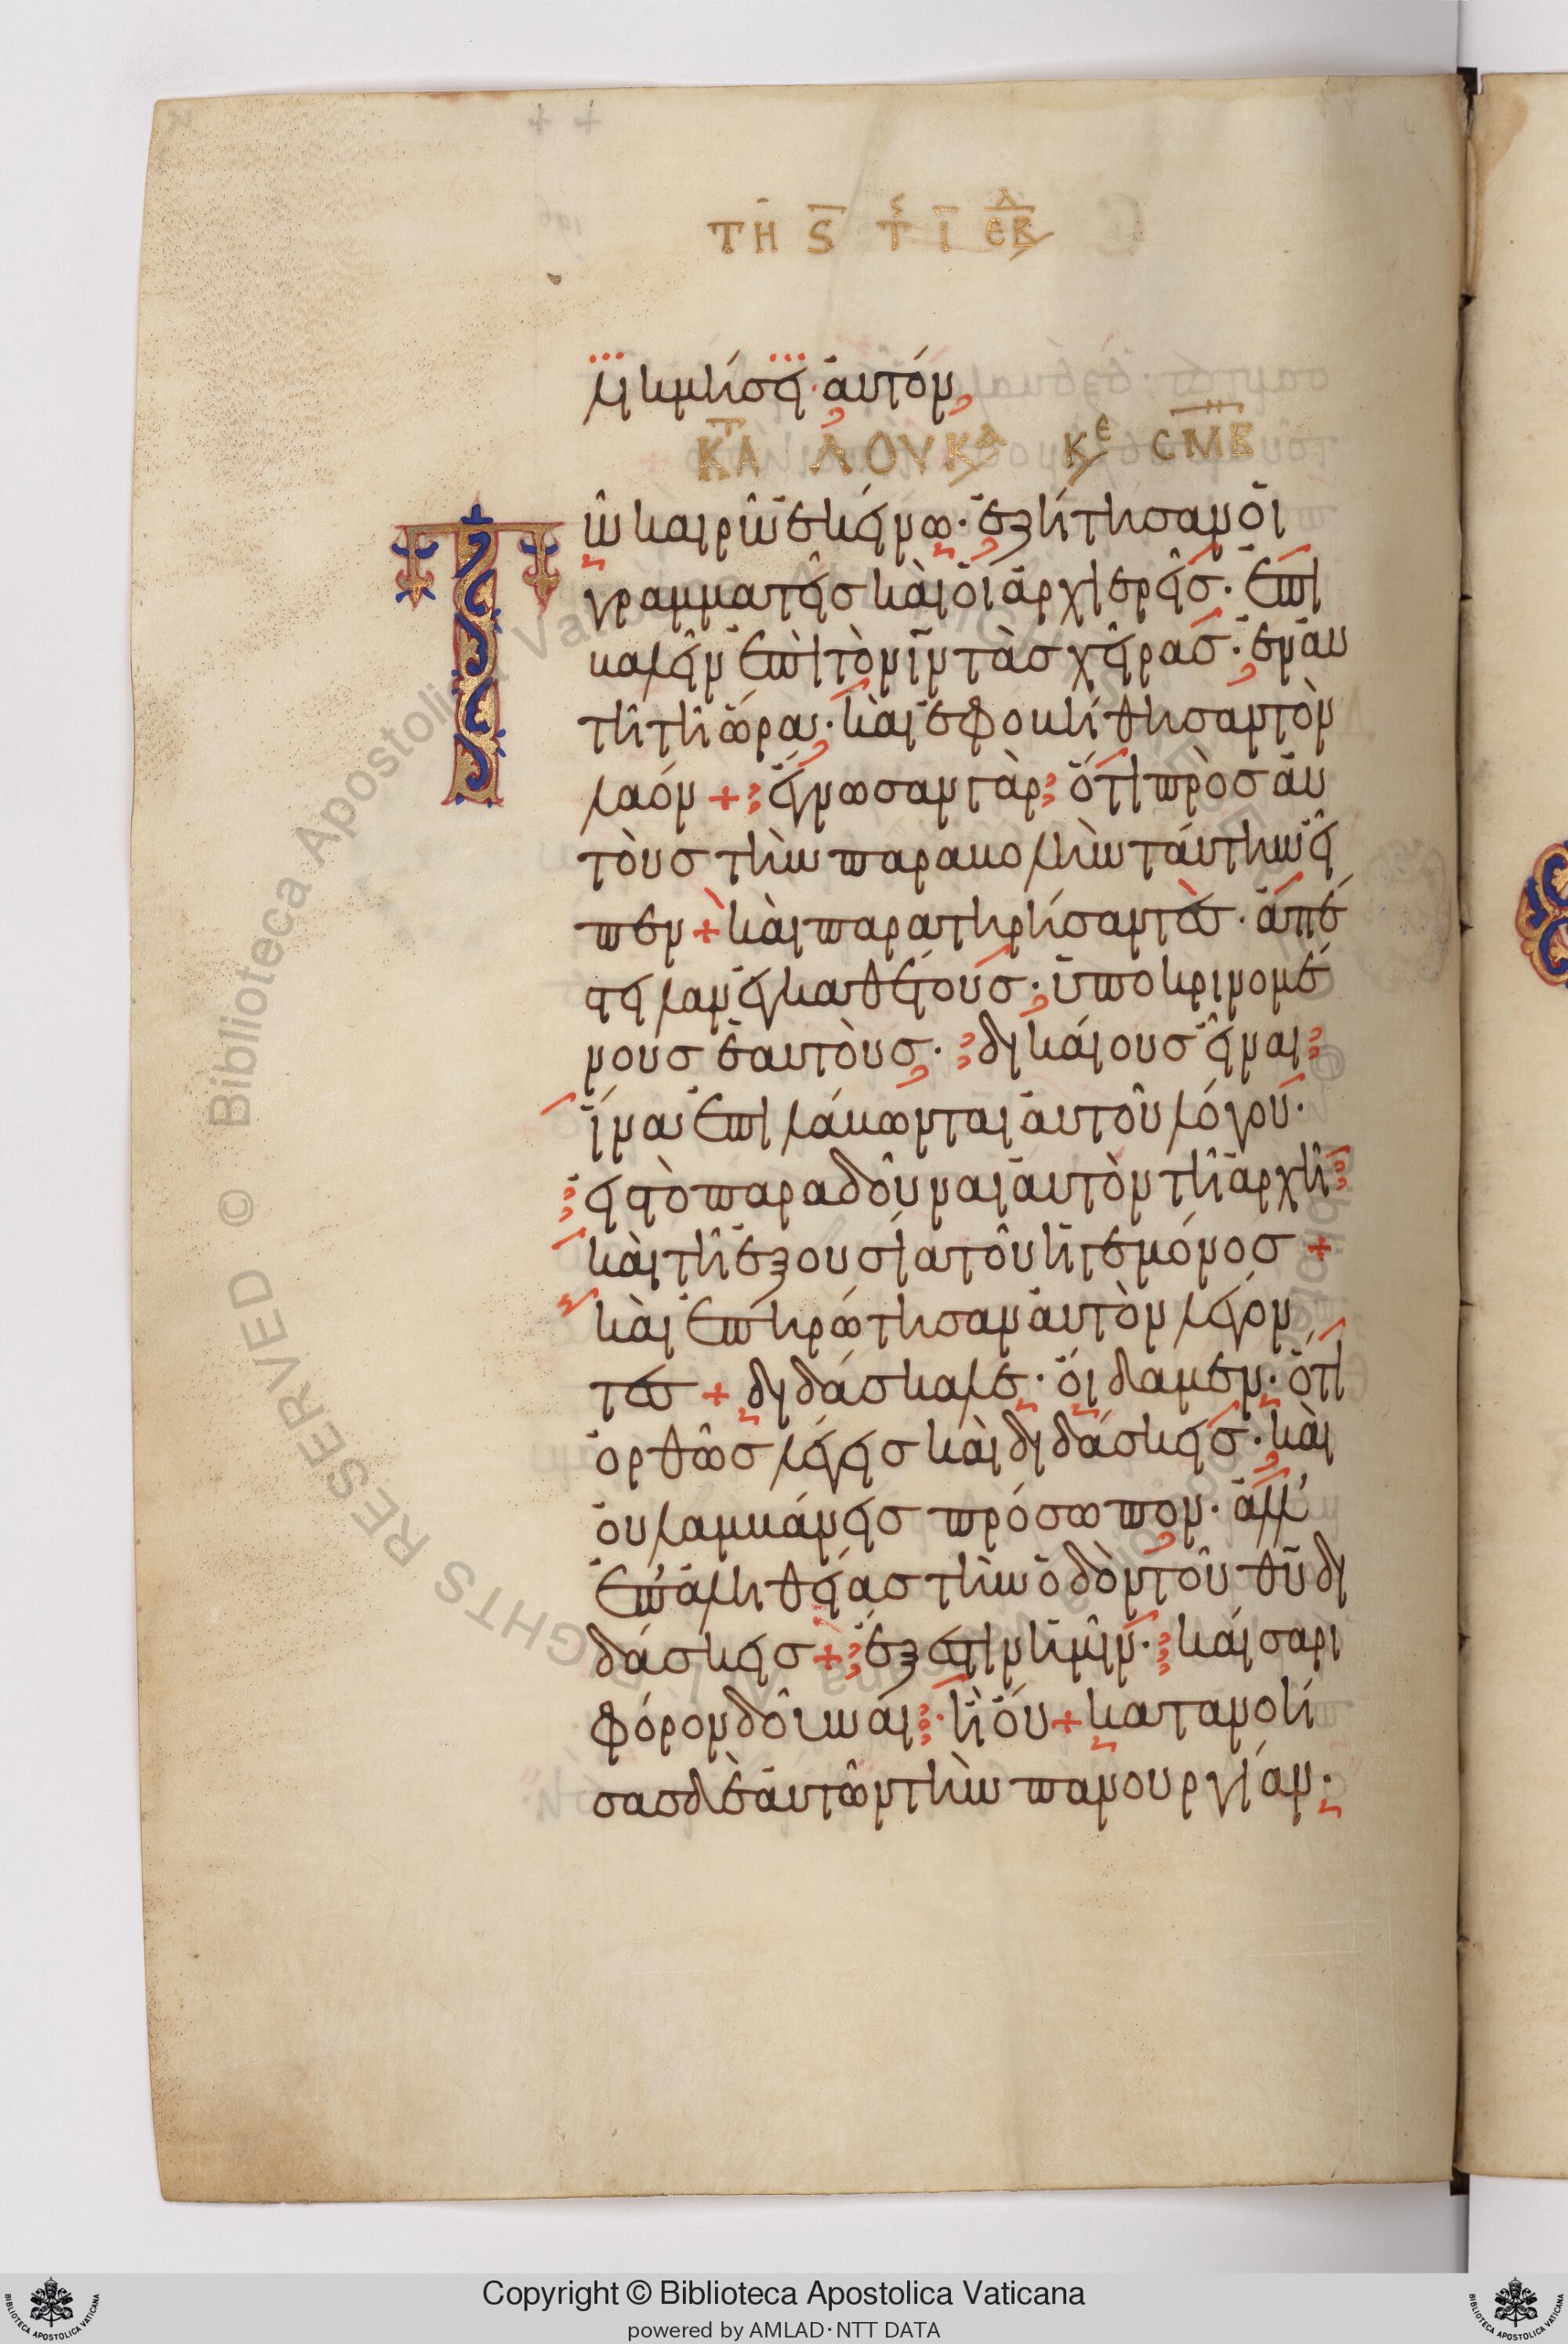 ΤΗ Ϛ Τς Ι ΕΒΔ
λικμήσει· αὐτόν
ΚΤΑ ΛΟΥΚΑ ΚΕ ϹΜΒ
Τῶ καιρῶ ἐκείνω· ἐζήτησαν οἱ
γραμματεῖς καὶ οἱ ἀρχιερεῖς· ἐπι
βαλεῖν ἐπὶ τὸν ἰν τὰς χεῖρας· ἐν αυ
τῆ τῆ ὥρα· καὶ ἐφοβήθησαν τὸν
λαόν + ἔγνωσαν γὰρ ὅτι πρὸς αὐ
τοὺς τὴν παραβολὴν ταύτην εἶ
πεν + καὶ παρατηρήσαντες· ἀπέ
στειλαν ἐγκαθέτους· ὑποκρινομέ
νους ἑαυτοὺς· δικάιους εἶναι
ἵνα ἐπιλάβωνται αὐτοῦ λόγου·
εἰς τὸ παραδοῦναι αὐτὸν τῆ ἀρχῆ
καὶ τῆ ἐξουσία τοῦ ἡγεμόνος +
καὶ ἐπηρώτησαν αὐτὸν λέγον
τες + διδάσκαλε· οἴδαμεν· ὅτι
ὀρθῶς λέγεις καὶ διδάσκεις· καὶ
οὐ λαμβάνεις πρόσωπον· ἀλλ'
ἐπ' ἀληθείας τὴν ὁδὸν τοῦ θῦ δι
δάσκεις + ἔξεστιν ἡμῖν· κάισαρι
φόρον δοῦναι· ἢ οὔ + κατανοή
σας δὲ αὐτῶν τὴν πανουργίαν·
Copyright © Biblioteca Apostolica Vaticana
powered by AMLAD·NTT DATA